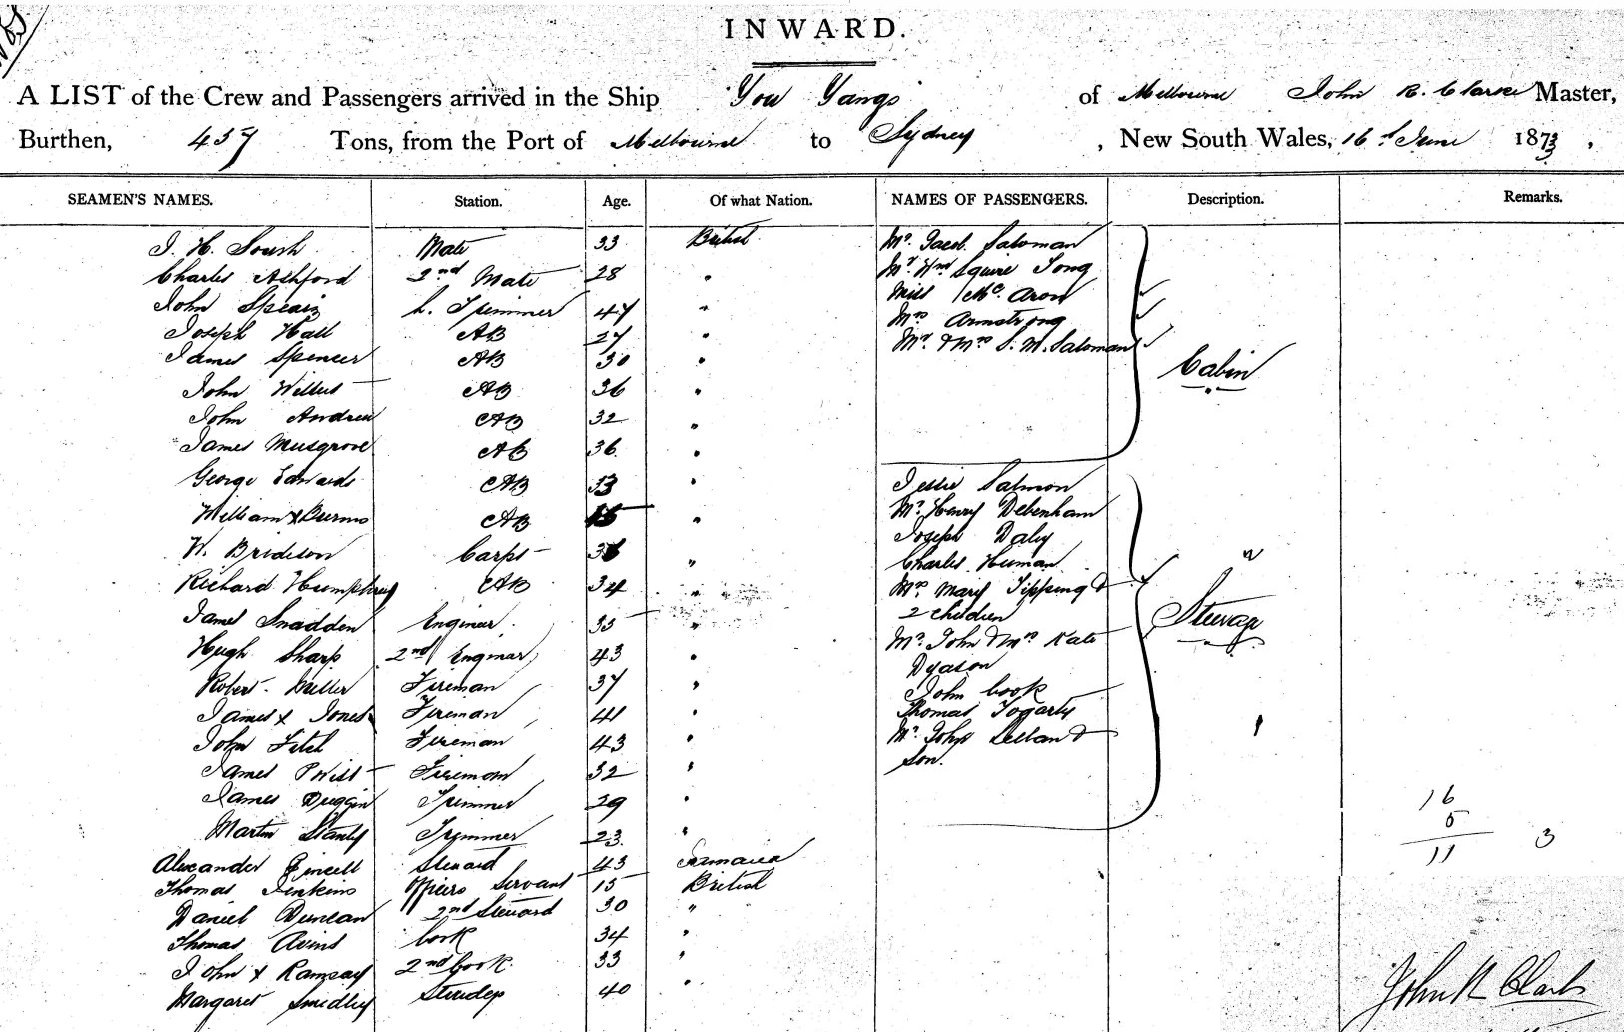 INWARD.
A LIST of the Crew and Passengers arrived in the Ship You Yangs of Melbourne John R. Clarke Master,
Burthen, 457 Tons, from the Port of Melbourne to Sydney, New South Wales, 16th June 1873,
SEAMEN'S NAMES. Station. Age. Of what Nation. NAMES OF PASSENGERS. Description. Remarks.
Mate 33 British
Charles Ashford 2nd Mate 28 "
John 47 "
Joseph Hall AB 27 "
James Spencer AB 30 "
John AB 36 "
John Andrew AB 32 "
James Musgrove AB 36 "
George Edwards AB 33 "
William x Burns AB "
W. Brideson Carptr "
Richard Humphreys AB 34 "
James Snadden Engineer 35 "
Hugh Sharp 2nd Engineer 43 "
Robert Miller Fireman 37 "
James x Jones Fireman 41 "
John Fireman 43 "
James Fireman 32 "
James Duggin Trimmer 29 "
Martin Stanly Trimmer 23 "
Alexander Steward 43 Jamaica
Thomas Jenkins Officers Servant 15 British
Daniel Duncan 2nd Steward 30 "
Thomas Cook 34 "
John x Ramsay 2nd Cook 33 "
Margaret Smedley Stewdess 40 "
Mr. Jacob Saloman
Mr. Wm Squire Tong
Miss
Mrs Armstrong
Mr. & Mrs S. M. Saloman
Cabin
Jessie Salmon
Mr. Henry Debenham
Joseph Daly
Charles Human
Mrs Mary Tipping &
2 children
Mr. John & Mrs Kate
Dyason
John Cook
Thomas Fogarty
Mr. John &
Son.
Steerage
16
5
11 3
John R Clarke